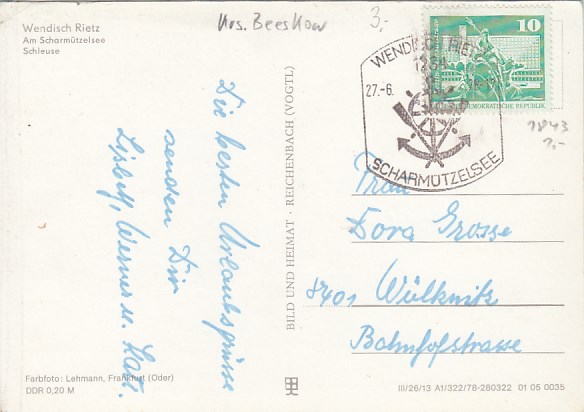 Wendisch Rietz
Am Scharmützelsee
Schleuse
Krs. Beeskow
3,-
10
DEMOKRATISCHE REPUBLIK
WENDISCH RIETZ
1234
27.-6.
SCHARMÜTZELSEE
1843
2,-
Die besten Urlaubsgrüsse
senden Dir
Lisbeth, Werner u.
BILD UND HEIMAT · REICHENBACH (VOGTL)
Frau
Dora Grosse
8401 Wülknitz
Bahnhofstrasse
Farbfoto: Lehmann, Frankfurt (Oder)
DDR 0,20 M
III/26/13 A1/322/78-280322 01 05 0035